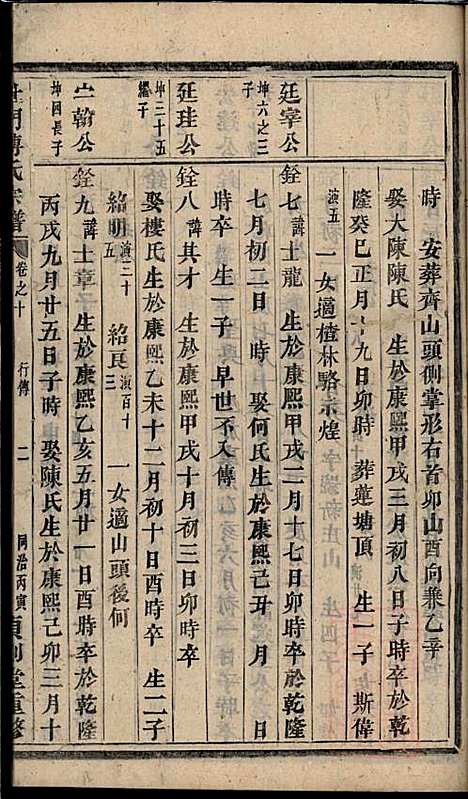 時　安葬齊山頭側掌形右首卯山酉向兼乙辛
娶大陳陳氏　生於康熙甲戌三月初八日子時卒於乾
隆癸巳正月十九日卯時　葬蓮塘頂　生一子　斯偉
演五　一女適楂林駱示煌
廷宰公
坤六之三
子
銓七　諱士龍　生於康熙甲戌二月十七日卯時卒於乾隆
七月初二日　時　娶何氏生於康熙己丑　月　日
時卒　生一子　早世不入傳
廷珪公
坤二十五
繼子
銓八　諱其才　生於康熙甲戌十月初三日卯時卒
娶樓氏生於康熙乙未十二月初十日酉時卒　生二子
紹明演二十五　紹良演百十三　一女適山頭後何
翰公
坤四長子
銓九　諱士章　生於康熙乙亥五月廿一日酉時卒於乾隆
丙戌九月廿五日子時　娶陳氏生於康熙己卯三月十
傅氏宗譜　卷之十　行傳　二　同治丙寅　貞利堂重修